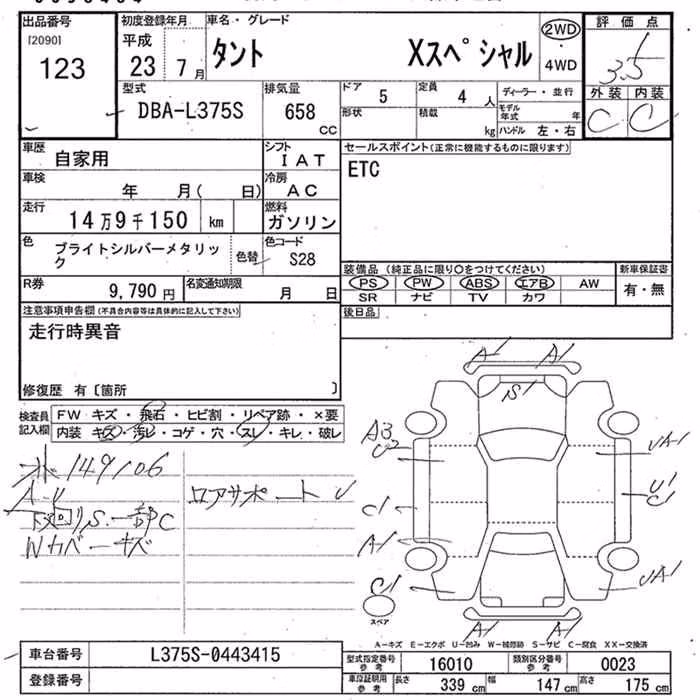 出品番号
[2090]
123
初度登録年月
平成
23 7 月
車名・グレード
タント Xスペシャル
2WD
4WD
評価点
3.5
外装 内装
C C
型式
DBA-L375S
排気量
658 CC
ドア 5
定員 4 人
形状
積載 kg
ディーラー・並行
モデル年式 年
ハンドル 左・右
車歴
自家用
シフト
IAT
車検
年 月( 日)
冷房
AC
走行
14万9千150 km
燃料
ガソリン
色
ブライトシルバーメタリック
色替
色コード
S28
R券
9,790 円
名変通知期限
月 日
セールスポイント(正常に機能するものに限ります)
ETC
装備品(純正品に限り○をつけてください)
PS PW ABS エアB AW
SR ナビ TV カワ
新車保証書
有・無
後日品
注意事項申告欄(不具合内容等は具体的に記入して下さい)
走行時異音
修復歴 有〔箇所 〕
検査員記入欄
FW キズ・飛石・ヒビ割・リペア跡・×要
内装 キズ・汚レ・コゲ・穴・スレ・キレ・破レ
149106
A-U
下回りS.一部C
Wカバーキズ
ロアサポート U
A1 A1
S1
A3
U2
UA1
C1
U1
C1
A1
UA1
C1
スペア
A1 A1
A-キズ E-エクボ U-凹み W-補修跡 S-サビ C-腐食 XX-交換済
車台番号 L375S-0443415
登録番号
型式指定番号参考 16010
類別区分番号参考 0023
車庫証明用参考 長さ 339 cm 幅 147 cm 高さ 175 cm